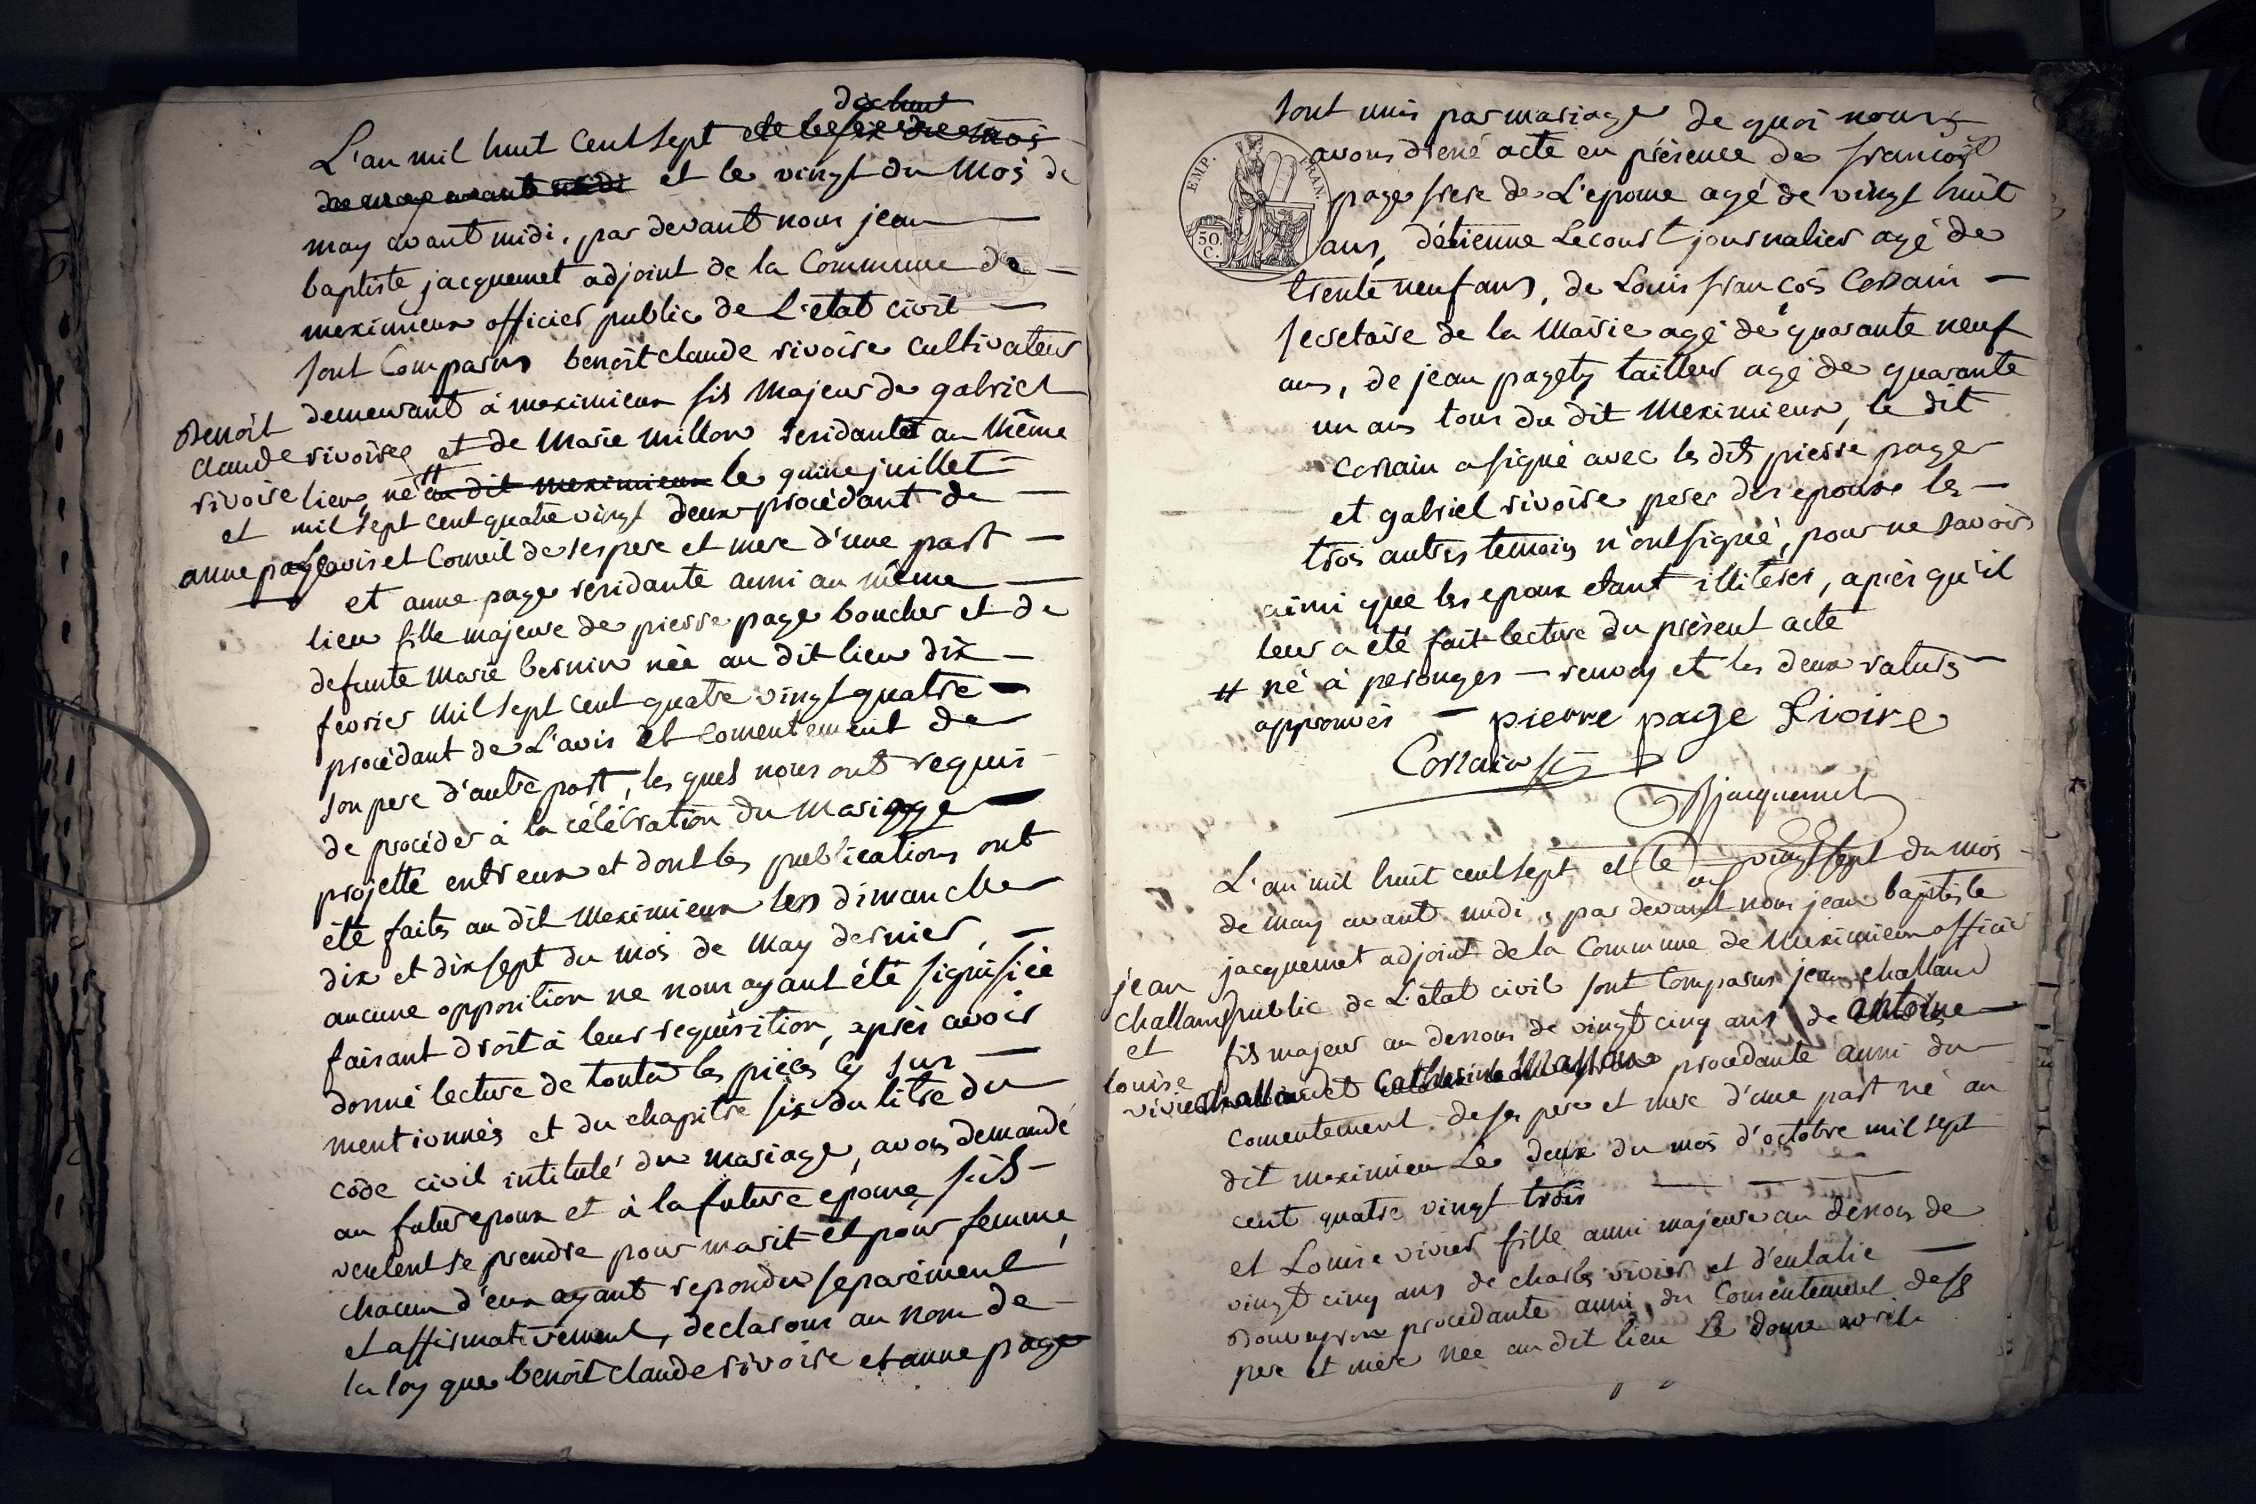 dix huit
L'an mil huit cent sept et le six du mois
de may avant midi et le vingt du mois de
may avant midi, par devant nous jean
baptiste jacquemet adjoint de la Commune de
meximieux officier public de L'état civil
sont Comparus benoit claude rivoire cultivateur
demeurant à meximieux fils majeur de gabriel
rivoire et de Marie millon residantet au même
lieu, né # au dit meximieux le quinze juillet
mil sept cent quatre vingt deux procédant de
L'avis et Conseil de ses pere et mere d'une part
et anne page residante aussi au même
lieu fille majeure de pierre page boucher et de
defunte Marie bernin née au dit lieu dix
fevrier mil sept cent quatre vingt quatre
procédant de L'avis et consentement de
son pere d'autre part, les quels nous ont requis
de procéder à la célébration du mariage
projetté entreux et dont les publications ont
été faites au dit meximieux les dimanche
dix et dixsept du mois de may dernier,
aucune opposition ne nous ayant été signifiée
faisant droit à leur requisition, après avoir
donné lecture de toutes les pièces cy sus
mentionnés et du chapitre six du titre du
code civil intitulé du mariage, avons demandé
au futur epoux et à la future epouse s'ils
veulent se prendre pour marit et pour femme,
chacun d'eux ayant repondu separément
et affirmativement, declarons au nom de
la loy que benoit claude rivoire et anne page
Benoit
claude
rivoire
et
anne page
sont unis par mariage de quoi nous
avons drené acte en présence de françois
page frere de L'epouse agé de vingt huit
ans, d'étienne Lecourt journalier agé de
trente neuf ans, de Louis françois Corrain
secretaire de la Mairie agé de quarante neuf
ans, de jean pagety tailleur agé de quarante
un ans tous du dit Meximieux, le dit
Corrain a signé avec les dits pierre page
et gabriel rivoire peres des epoux les
trois autres temoins n'ont signé, pour ne savoir
ainsi que les epoux etant illiteres, après qu'il
leur a été fait lecture du présent acte
# né à perouges — renvoy et les deux raturs
approuvés — pierre page Rivoire
Corrain
JBjacquemet
EMP. FRAN.
50.
C.
L'an mil huit cent sept et le vingt sept du mois
de may avant midi, par devant nous jean baptiste
jacquemet adjoint de la Commune de Meximieux officier
public de L'état civil sont Comparus jean challand
fils majeur au dessous de vingt cinq ans de antoine
challand et Catherine procédante aussi du
consentement de ses pere et mere d'une part né au
dit meximieu Le deux du mois d'octobre mil sept
cent quatre vingt trois
et Louise vivier fille aussi majeure au dessous de
vingt cinq ans de charles vivier et d'eulalie
procédante aussi du Consentement de ses
pere et mère née au dit lieu Le douze avril
jean
challand
et
Louise
vivier